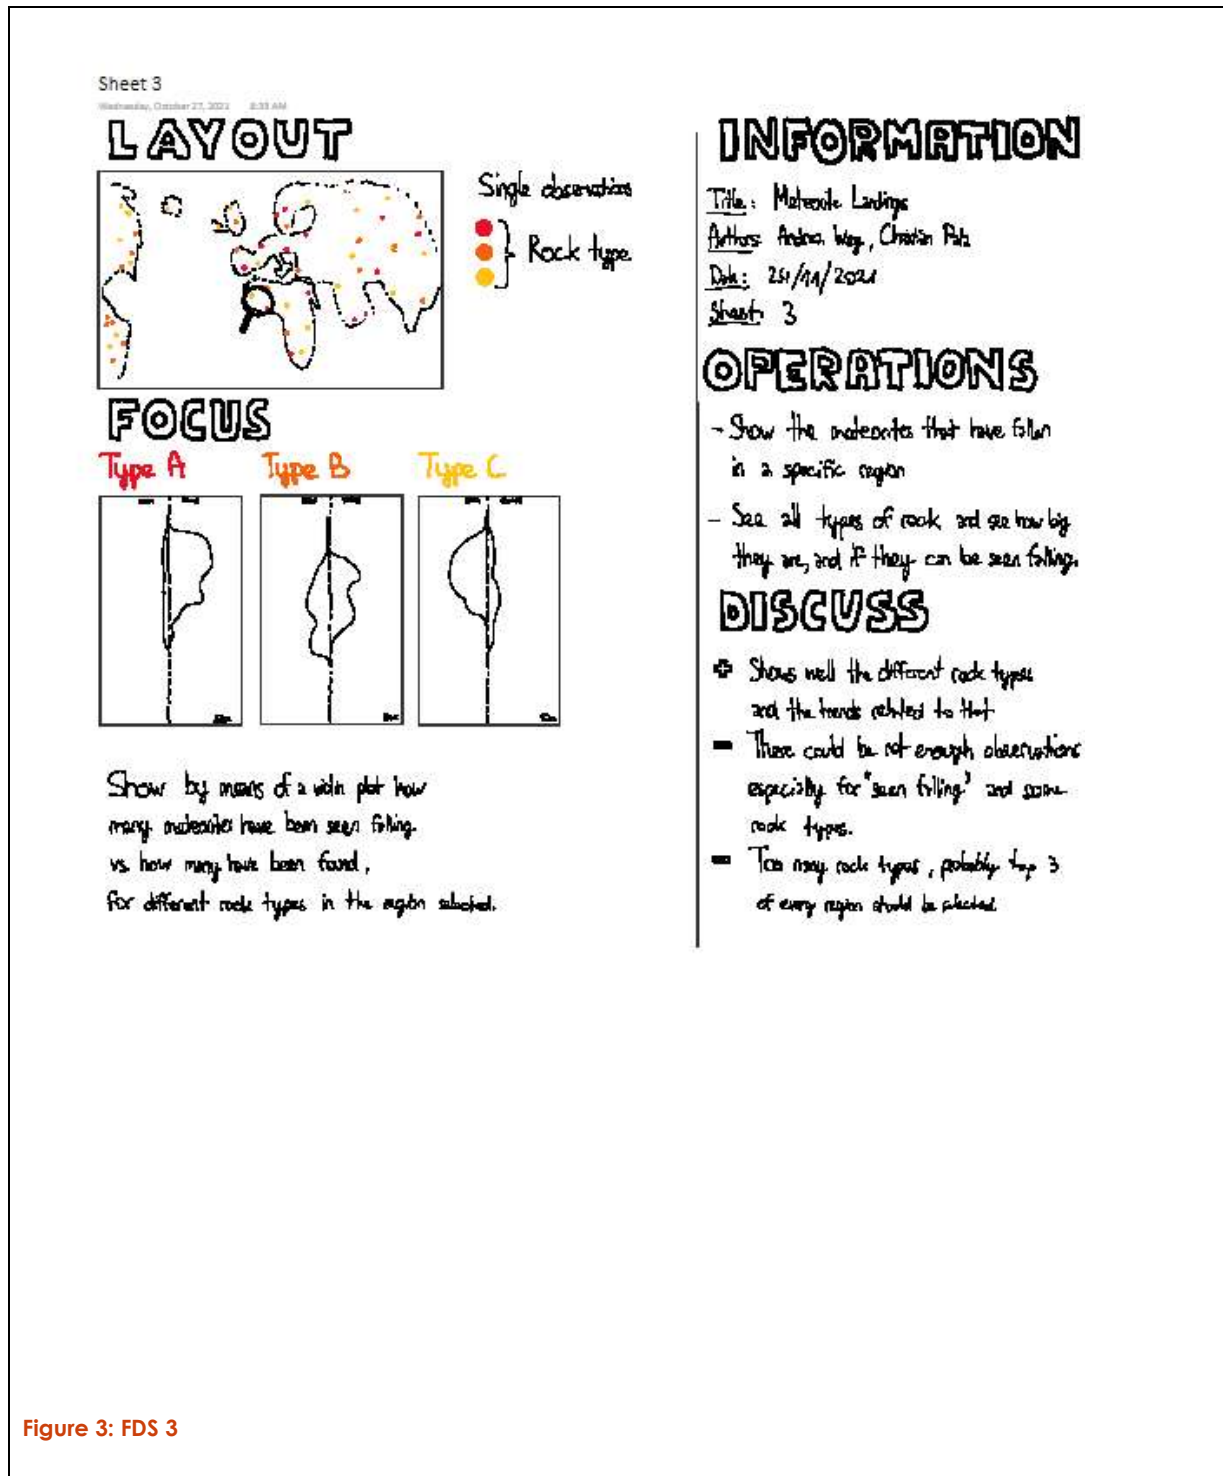 Sheet 3
Wednesday, October 27, 2021 8:33 AM
LAYOUT
Single observations
Rock type
FOCUS
Type A
Type B
Type C
Show by means of a violin plot how
many meteorites have been seen falling
vs. how many have been found,
for different rock types in the region selected.
INFORMATION
Title: Meteorite Landings
Authors: Christian
Date: /11/2021
Sheet: 3
OPERATIONS
- Show the meteorites that have fallen
in a specific region
- See all types of rock and see how big
they are, and if they can be seen falling.
DISCUSS
+ Shows well the different rock types
and the trends related to that
- There could be not enough observations
especially for "seen falling" and some
rock types.
- Too many rock types, probably top 3
of every region should be selected
Figure 3: FDS 3